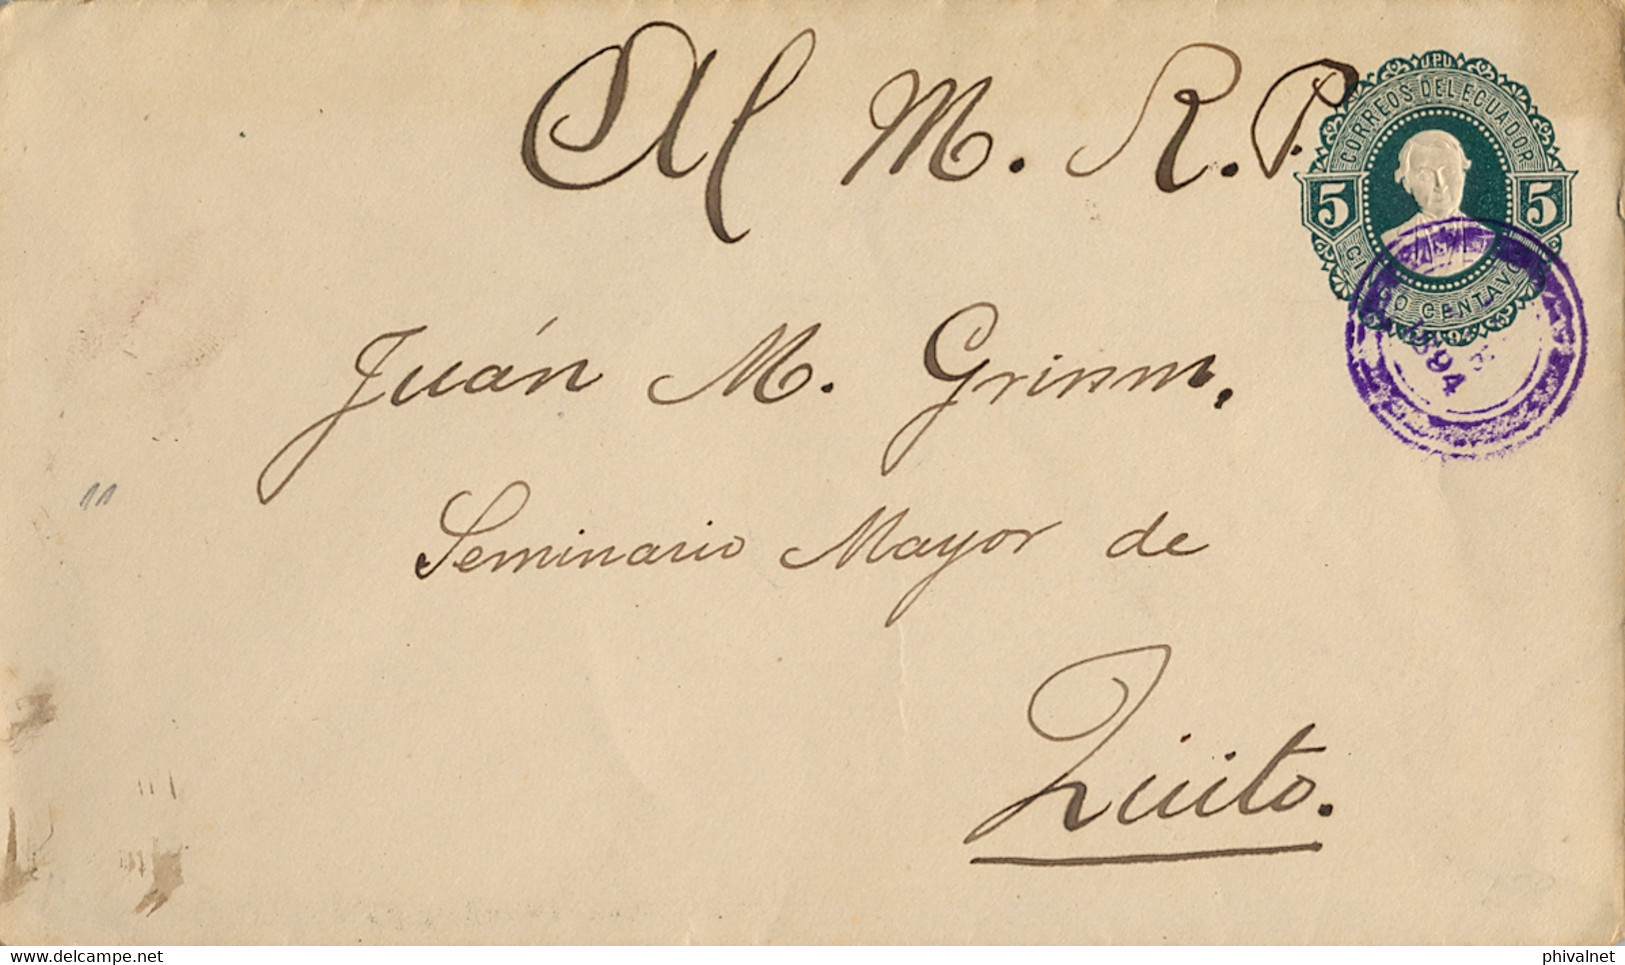 Al M. R. P.
UPU
CORREOS DEL ECUADOR
5 5
CINCO CENTAVOS
1894
Juán M. Grimm.
11
Seminario Mayor de
Quito.
delcampe.net
phivalnet